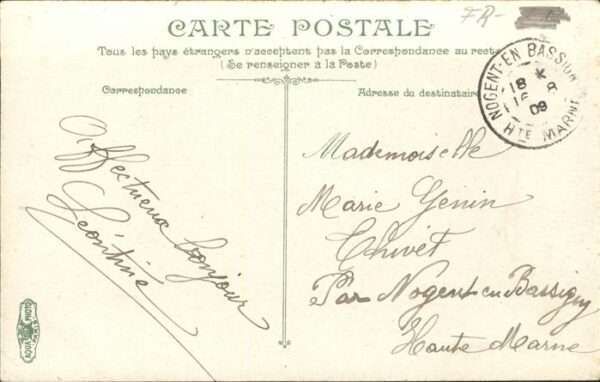 FR-
CARTE POSTALE
Tous les pays étrangers n'acceptent pas la Correspondance au recto
(Se renseigner à la Poste)
Correspondance
Adresse du destinataire
NOGENT-EN-BASSIGN
18 K
16 8
09
HTE MARNE
Affectueux bonjour
Léontine
Mademoiselle
Marie Genin
Thivet
Par Nogent en Bassigny
Haute Marne
AQUA PHOTO
PARIS